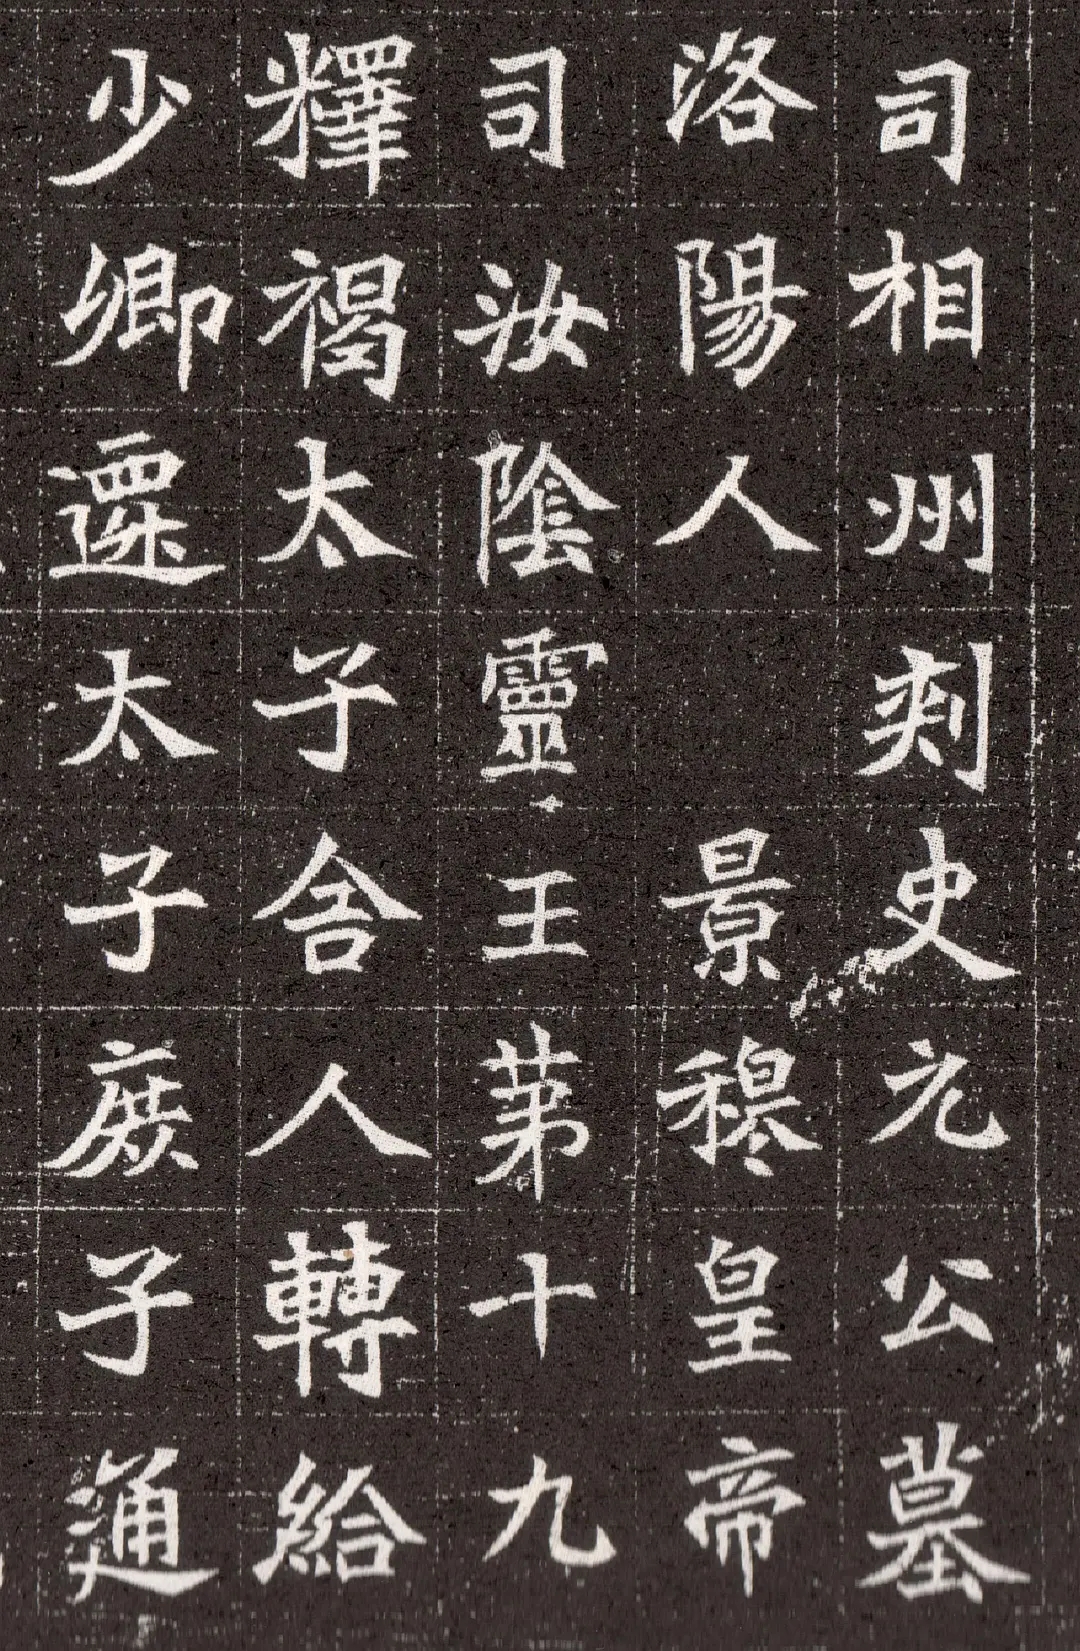 司相州刾史元公墓
洛陽人 景穆皇帝
司汝陰靈王苐十九
釋褐太子舍人轉給
少卿遷太子庶子通